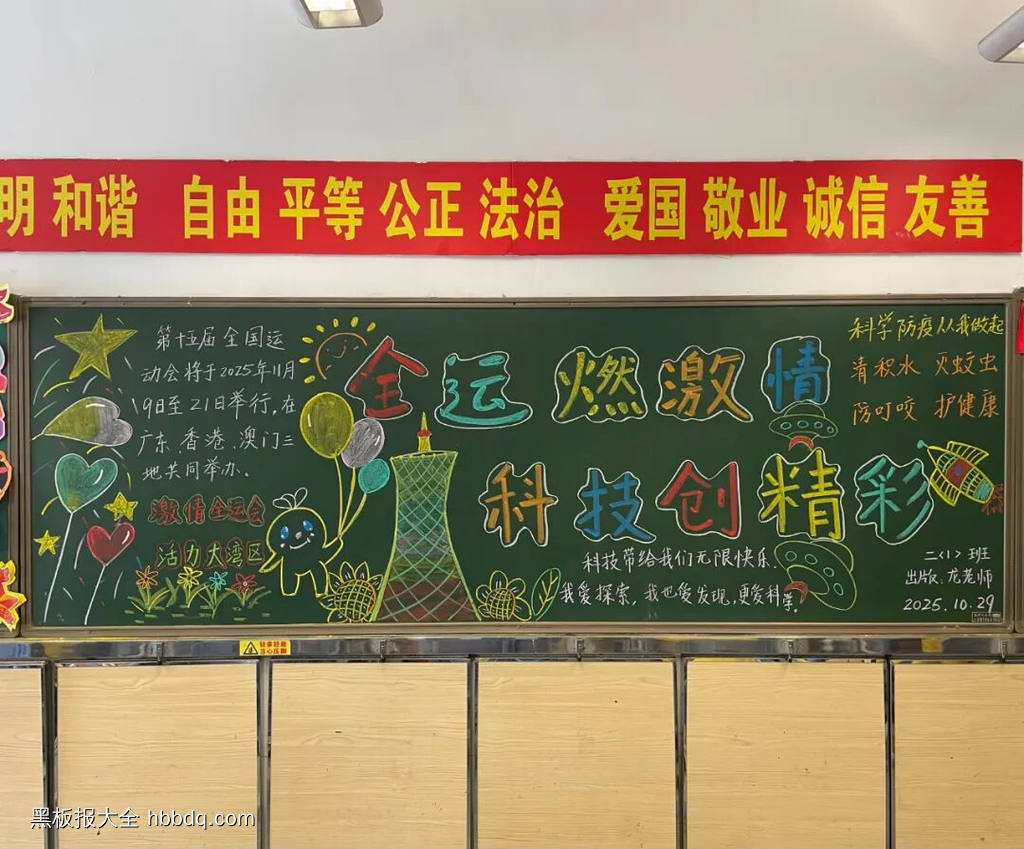 明 和谐 自由 平等 公正 法治 爱国 敬业 诚信 友善
第十五届全国运
动会将于2025年11月
9日至21日举行,在
广东、香港、澳门三
地共同举办、
激情全运会
活力大湾区
全运燃激情
科技创精彩
科技带给我们无限快乐.
我爱探索,我也爱发现,更爱科学。
科学防疫从我做起
清积水 灭蚊虫
防叮咬 护健康
二<1>班
出版:龙老师
2025.10.29
黑板报大全 hbbdq.com